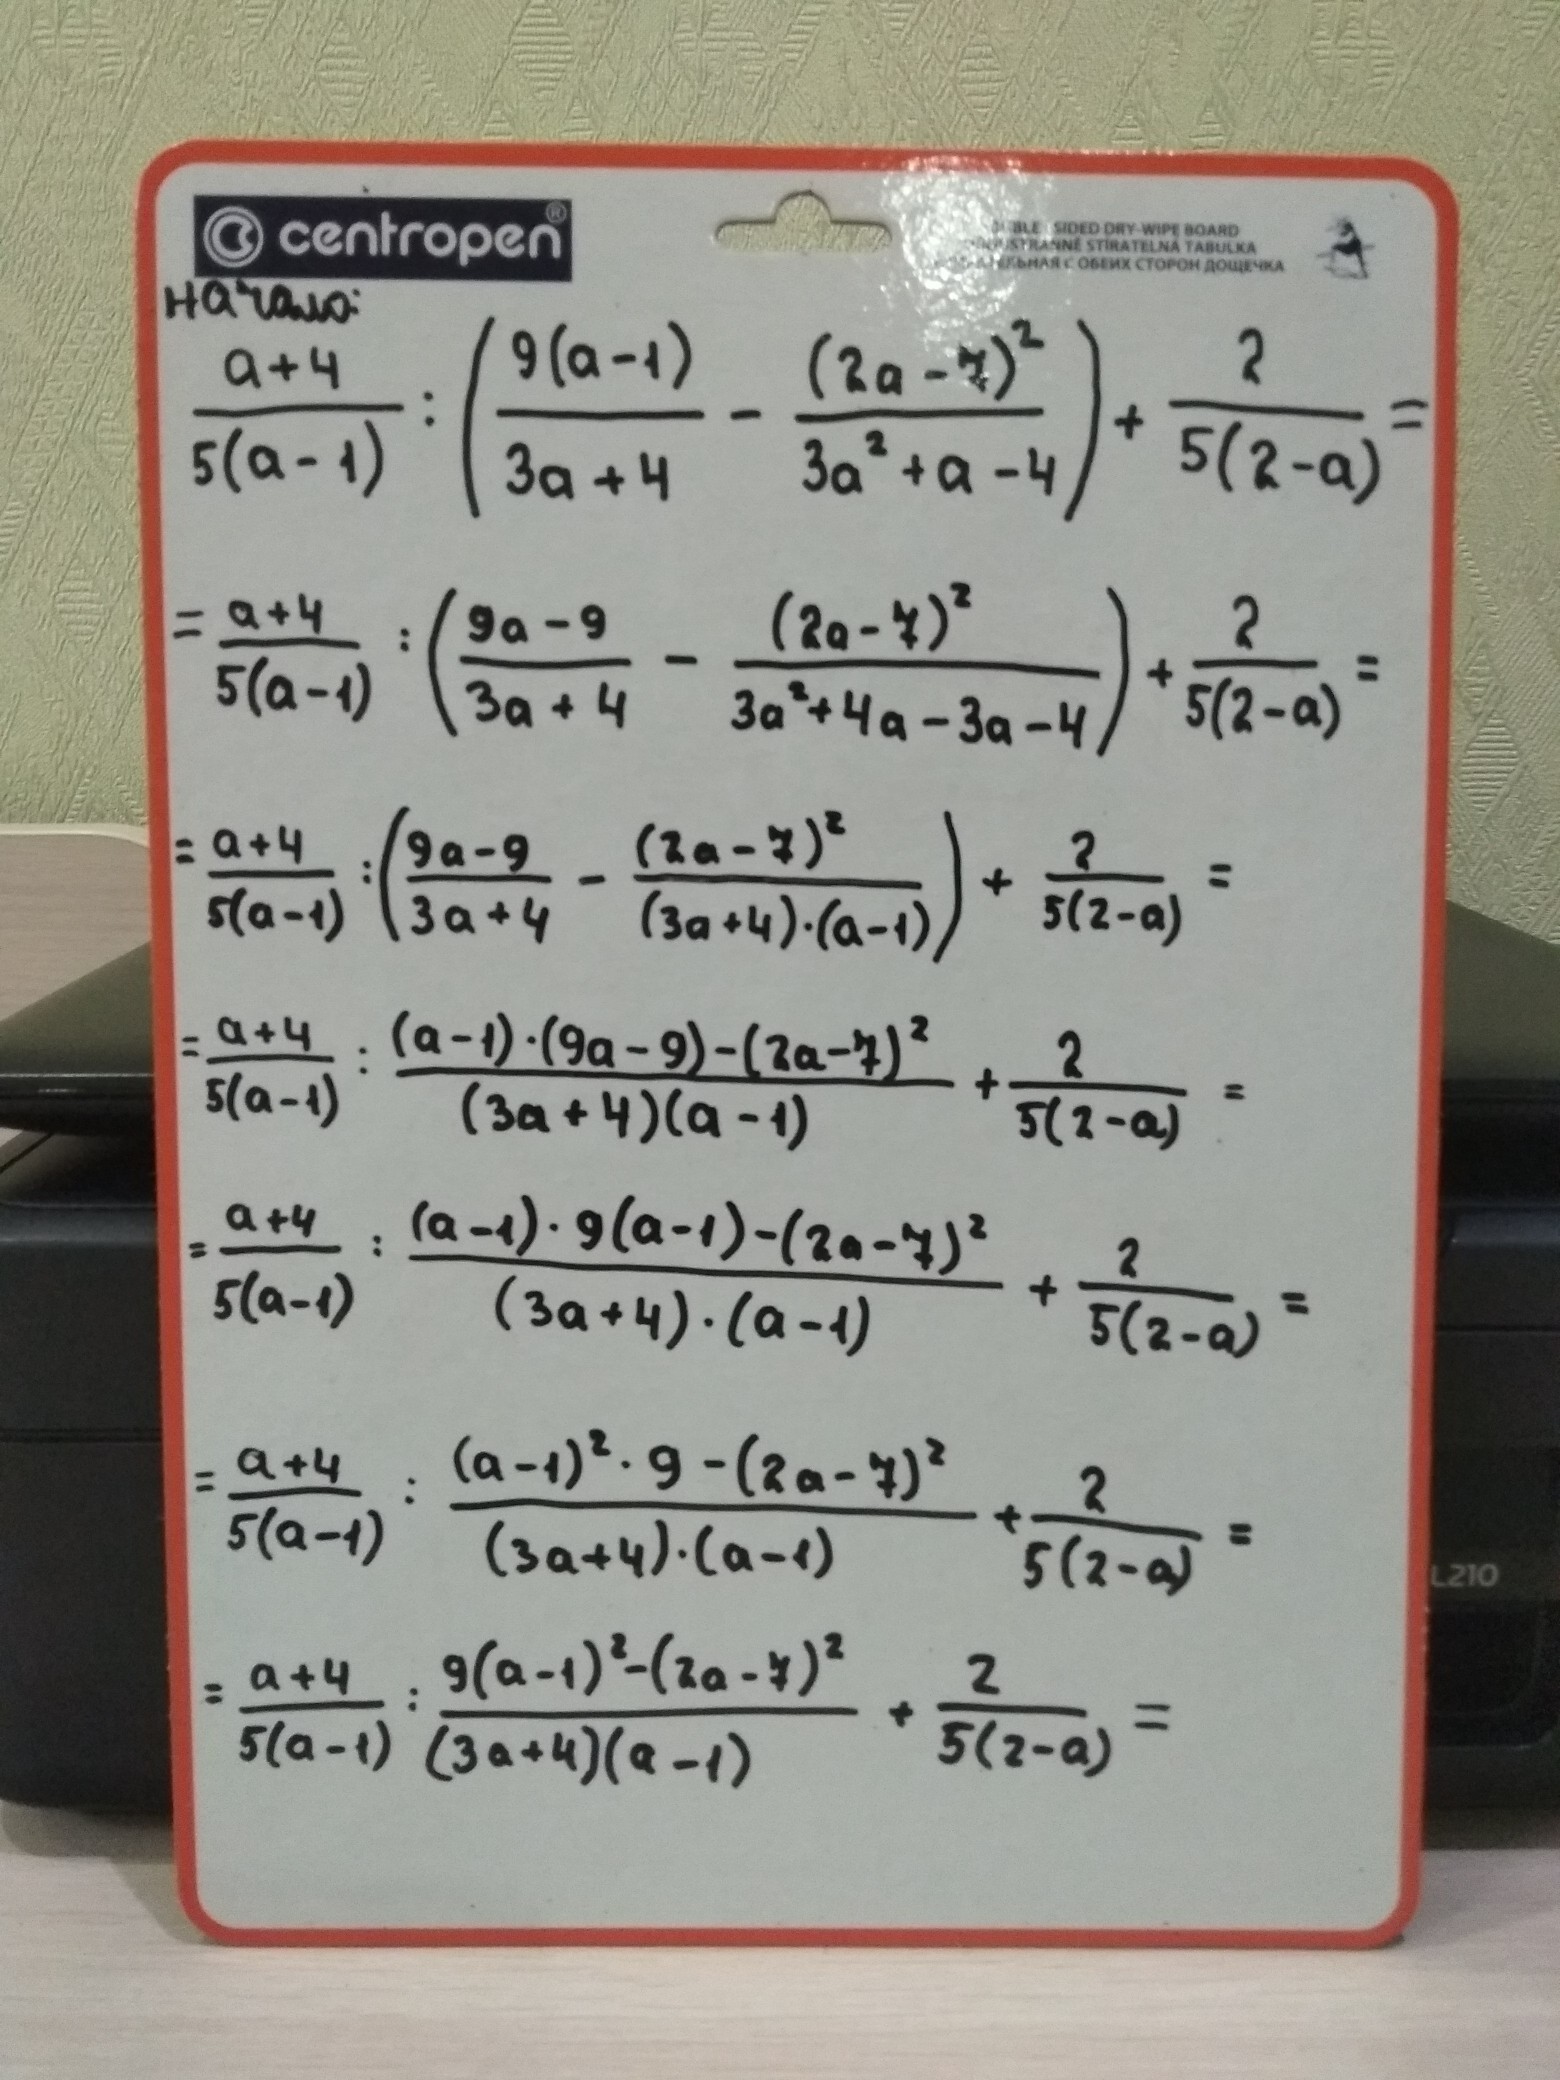 centropen®
SIDED DRY-WIPE BOARD
STÍRATELNÁ TABULKA
С ОБЕИХ СТОРОН ДОЩЕЧКА
начало:
(a+4)/(5(a-1)) : ( (9(a-1))/(3a+4) - (2a-7)²/(3a²+a-4) ) + 2/(5(2-a)) =
= (a+4)/(5(a-1)) : ( (9a-9)/(3a+4) - (2a-7)²/(3a²+4a-3a-4) ) + 2/(5(2-a)) =
= (a+4)/(5(a-1)) : ( (9a-9)/(3a+4) - (2a-7)²/((3a+4)·(a-1)) ) + 2/(5(2-a)) =
= (a+4)/(5(a-1)) : ((a-1)·(9a-9)-(2a-7)²)/((3a+4)(a-1)) + 2/(5(2-a)) =
= (a+4)/(5(a-1)) : ((a-1)·9(a-1)-(2a-7)²)/((3a+4)·(a-1)) + 2/(5(2-a)) =
= (a+4)/(5(a-1)) : ((a-1)²·9-(2a-7)²)/((3a+4)·(a-1)) + 2/(5(2-a)) =
= (a+4)/(5(a-1)) : (9(a-1)²-(2a-7)²)/((3a+4)(a-1)) + 2/(5(2-a)) =
L210